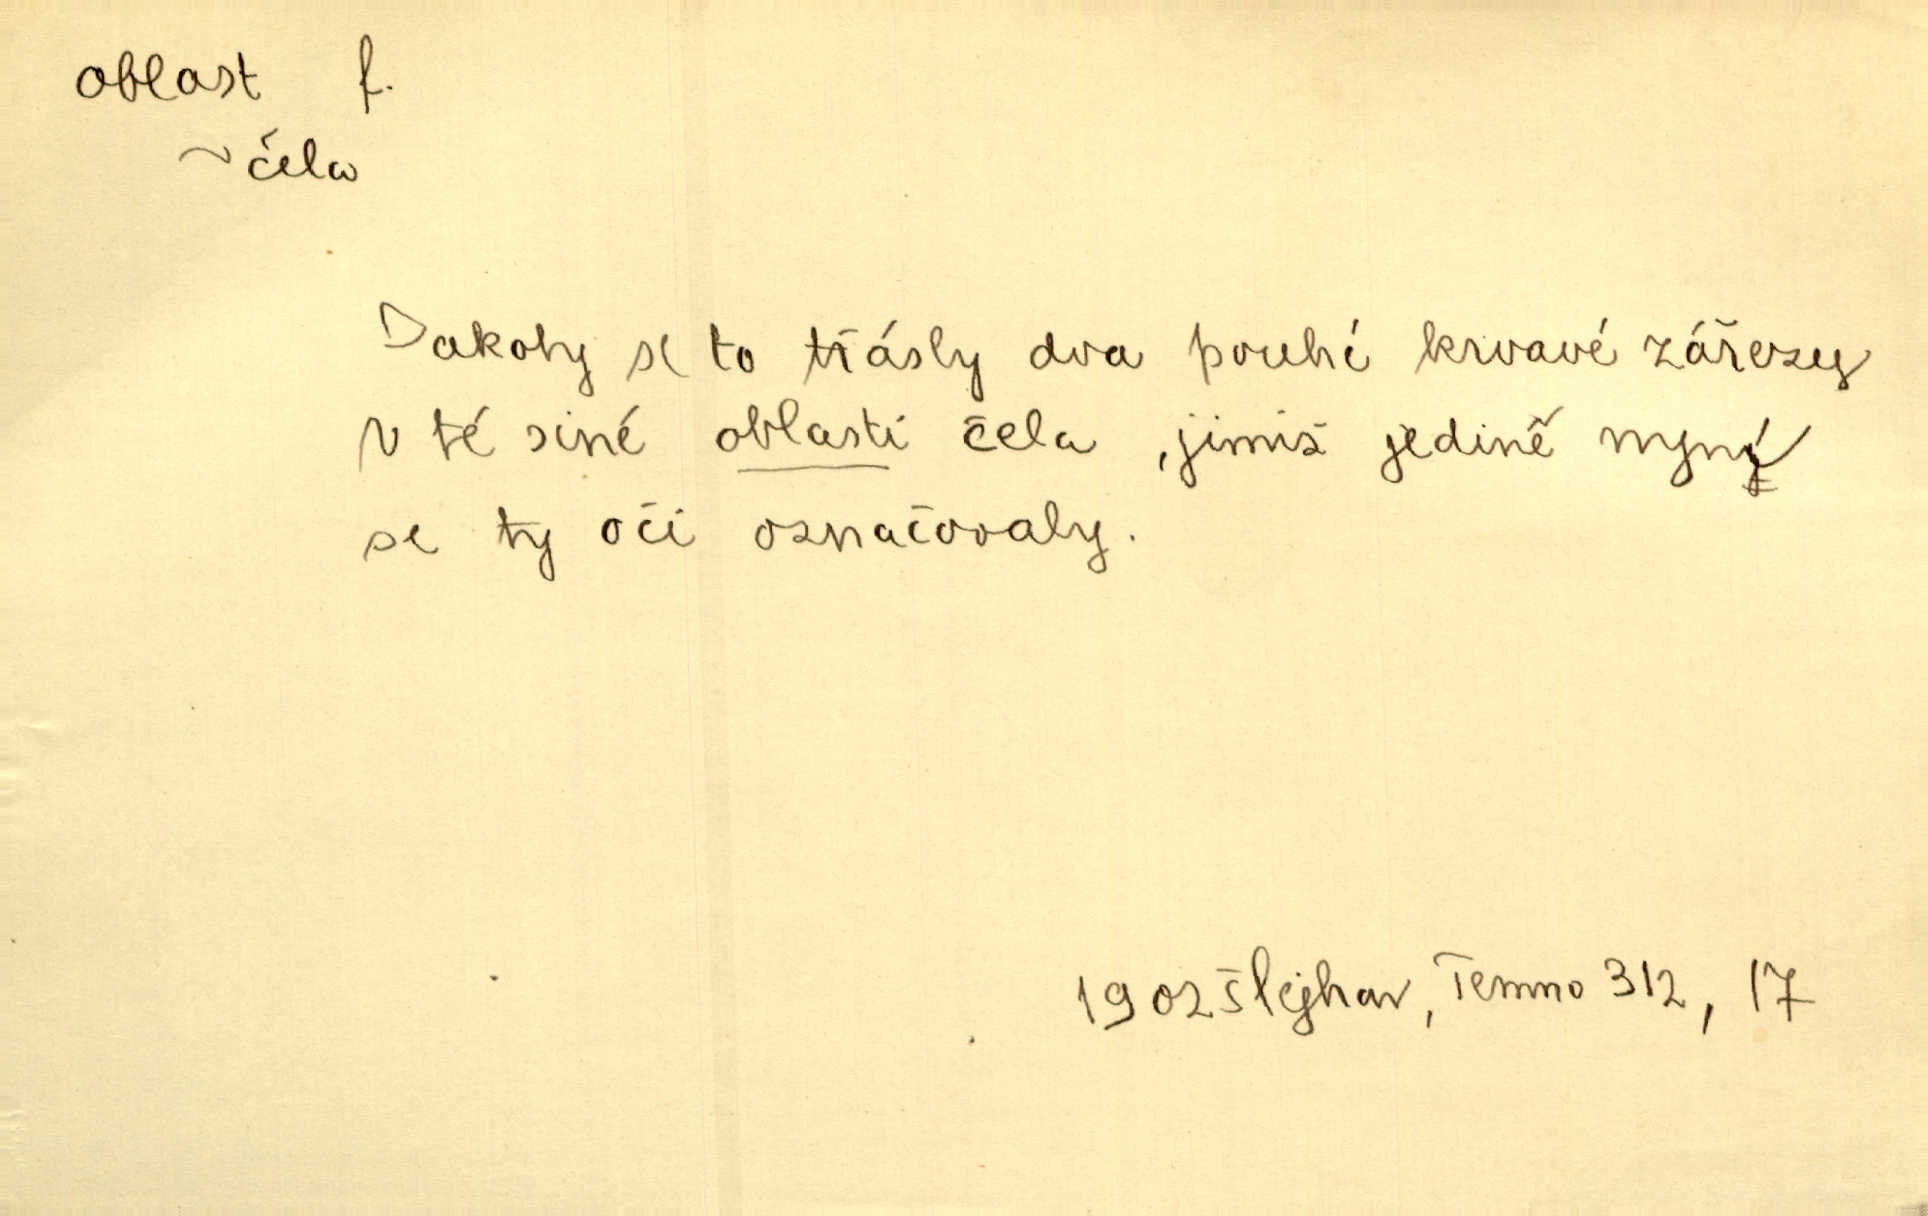 oblast f.
~ čela
Jakoby se to třásly dva pouhé krvavé zářezy
v té siné oblasti čela, jimiž jedině nyní
se ty oči označovaly.
1902 Šlejhar, Temno 312, 17